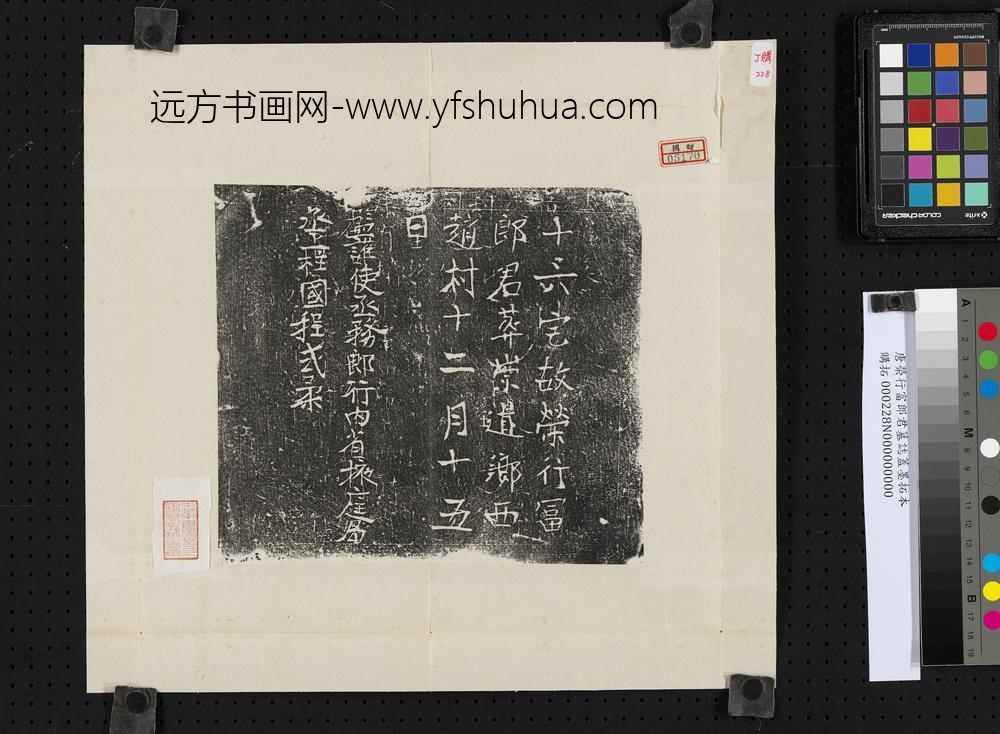 远方书画网-www.yfshuhua.com
購
228
國贈
05170
十六宅故榮行冨
郎君葬崇道鄉西
趙村十二月十五
日
監護使丞務郎行內省掖庭局
丞程國程式录
唐榮行富郎君墓誌蓋墨拓本
購拓 000228N000000000
x-rite
colorchecker
MSCCPPCC0409
A 1 2 3 4 5 6 M 8 9 10 11 12 13 14 15 B 17 18 19